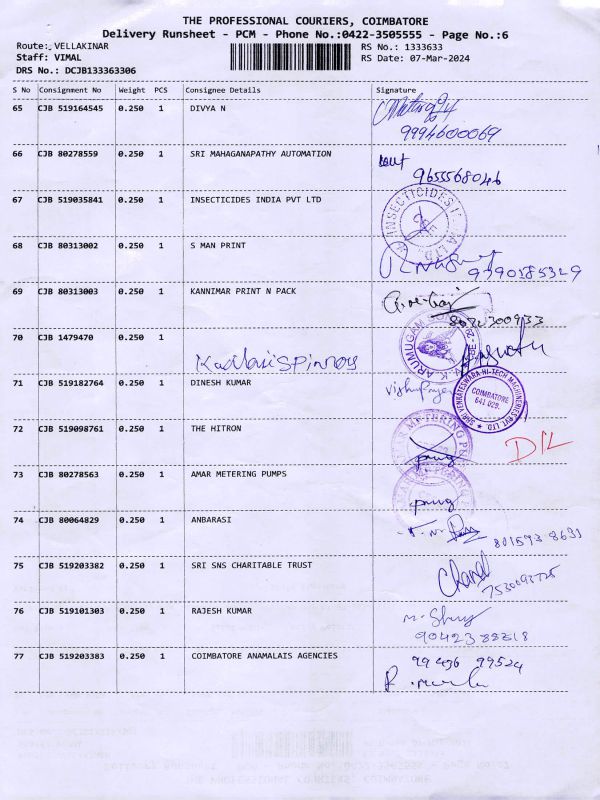 THE PROFESSIONAL COURIERS, COIMBATORE
Delivery Runsheet - PCM - Phone No.:0422-3505555 - Page No.:6
Route: VELLAKINAR RS No.: 1333633
Staff: VIMAL RS Date: 07-Mar-2024
DRS No.: DCJB133363306
S No Consignment No Weight PCS Consignee Details Signature
65 CJB 519164545 0.250 1 DIVYA N
9994600069
66 CJB 80278559 0.250 1 SRI MAHAGANAPATHY AUTOMATION
9655568046
67 CJB 519035841 0.250 1 INSECTICIDES INDIA PVT LTD
68 CJB 80313002 0.250 1 S MAN PRINT
69 CJB 80313003 0.250 1 KANNIMAR PRINT N PACK
70 CJB 1479470 0.250 1
71 CJB 519182764 0.250 1 DINESH KUMAR
SHRI VENKATESWARA HI-TECH MACHINERIES PVT. LTD.
COIMBATORE
641 029.
72 CJB 519098761 0.250 1 THE HITRON
D/L
73 CJB 80278563 0.250 1 AMAR METERING PUMPS
74 CJB 80064829 0.250 1 ANBARASI
75 CJB 519203382 0.250 1 SRI SNS CHARITABLE TRUST
76 CJB 519101303 0.250 1 RAJESH KUMAR
77 CJB 519203383 0.250 1 COIMBATORE ANAMALAIS AGENCIES